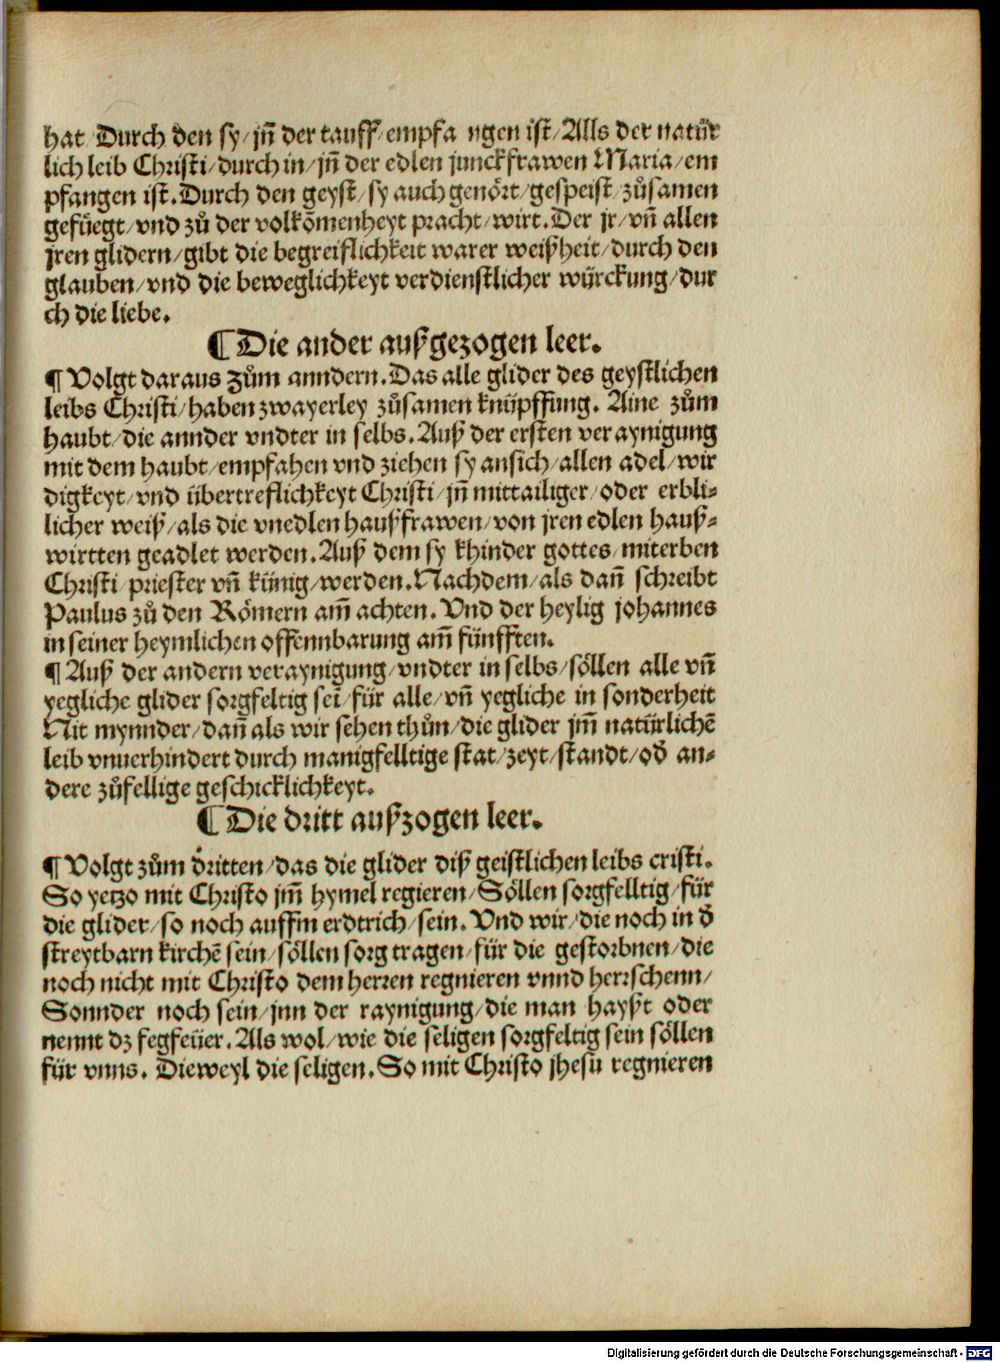 hat Durch den sy/ jn̄ der tauff/ empfa ngen ist/ Alls der natür
lich leib Christi/ durch in/ jn̄ der edlen junckfrawen Maria/ em
pfangen ist. Durch den geyst/ sy auch genört/ gespeist/ zůsamen
gefüegt/ vnd zů der volkōmenheyt pracht/ wirt. Der jr/ vn̄ allen
jren glidern/ gibt die begreiflichkeit warer weißheit/ durch den
glauben/ vnd die beweglichkeyt verdienstlicher würckung/ dur
ch die liebe.
¶ Die ander außgezogen leer.
¶ Volgt daraus zům anndern. Das alle glider des geystlichen
leibs Christi/ haben zwayerley zůsamen knüpffung. Aine zům
haubt/ die annder vndter in selbs. Auß der ersten veraynigung
mit dem haubt/ empfahen vnd ziehen sy ansich/ allen adel/ wir
digkeyt/ vnd übertreflichkeyt Christi/ jn̄ mittailiger/ oder erbli-
licher weiß/ als die vnedlen haußfrawen/ von jren edlen hauß-
wirtten geadlet werden. Auß dem sy khinder gottes/ miterben
Christi/ priester vn̄ künig/ werden. Nachdem/ als dan̄ schreibt
Paulus zů den Römern am̄ achten. Vnd der heylig johannes
in seiner heymlichen offennbarung am̄ fünfften.
¶ Auß der andern veraynigung/ vndter in selbs/ söllen alle vn̄
yegliche glider sorgfeltig sei̅/ für alle/ vn̄ yegliche in sonderheit
Nit mynnder/ dan̄ als wir sehen thůn/ die glider jm̄ natürlichē
leib vnuerhindert durch manigfelltige stat/ zeyt/ standt/ od̓ an-
dere zůfellige geschicklichkeyt.
¶ Die dritt außzogen leer.
¶ Volgt zům dritten/ das die glider diß geistlichen leibs cristi.
So yetzo mit Christo jm̄ hymel regieren/ Söllen sorgfelltig/ für
die glider/ so noch auffm erdtrich/ sein. Vnd wir/ die noch in d̓
streytbarn kirchē sein/ söllen sorg tragen/ für die gestorbnen/ die
noch nicht mit Christo dem herren regnieren vnnd herrschenn/
Sonnder noch sein/ jnn der raynigung/ die man hayßt oder
nennt dz fegfeüer. Als wol/ wie die seligen sorgfeltig sein söllen
für vnns. Dieweyl die seligen. So mit Christo jhesu regnieren
Digitalisierung gefördert durch die Deutsche Forschungsgemeinschaft - DFG